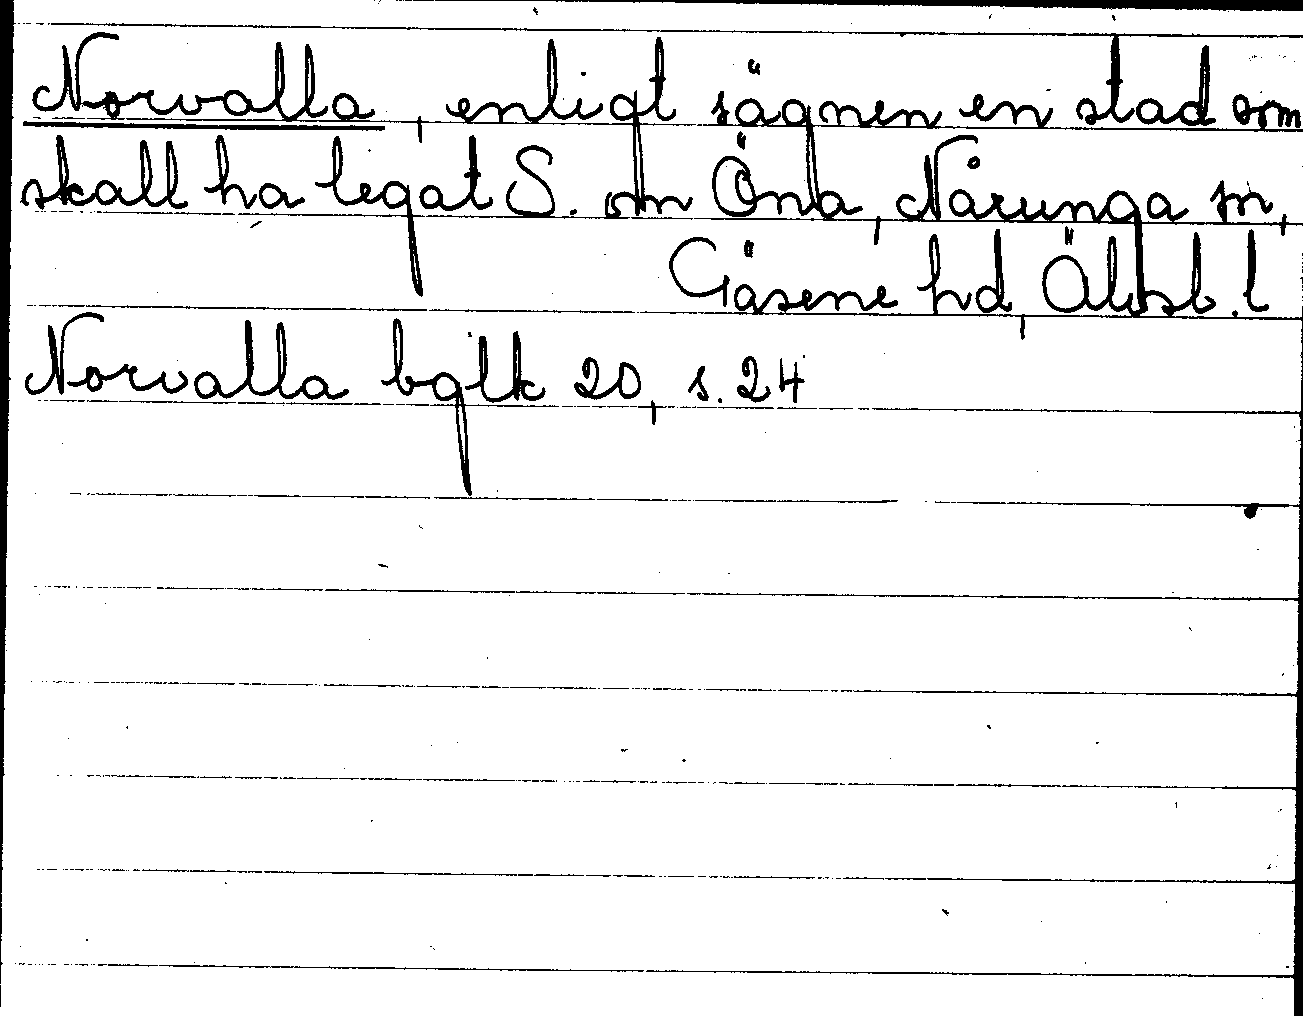 Norvalla, enligt sägnen en stad som
skall ha legat S. om Öna, Nårunga sn,
Gäsene hd, Älvsb. l
Norvalla bglk 20, s. 24